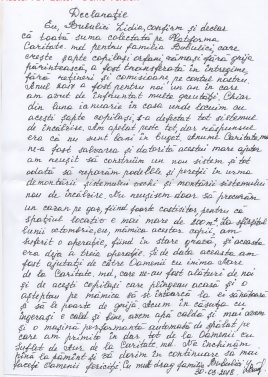 Declarație
Eu, Bubulici Lidia, confirm și declar
că toată suma colectată pe Platforma
Caritate.md pentru familia Bubulici, care
crește șapte copilași orfani, rămași fără grija
părintească, a fost transferată în întregime,
fără rețineri și comisioane pe contul nostru.
Anul 2024 a fost pentru noi un an în care
am avut de înfruntat multe greutăți. Chiar
din luna ianuarie în casa unde locuim cu
acești șapte copilași, s-a defectat tot sistemul
de încălzire. Am aflat poate tot, dar răspunsul
era că nu sunt bani în buget. Anume Caritate.md
ne-a fost salvarea și datorită acestui mare ajutor
am reușit să construim un nou sistem și tot
odată să reparăm podelele și pereții în urma
demontării sistemului vechi și montării sistemului
nou de încălzire. Nu reușeam doar să procurăm
un cazan pe gaz, fiind foarte costisitor pentru că
spațiul locativ e mai mare de 200 m². La sfârșitul
lunii octombrie, eu, mămica acestor copii, am
suferit o operație, fiind în stare gravă, și aceasta
era deja a treia operație. Și de data aceasta am
fost ajutați de către Oameni cu inima mare
de la Caritate.md, care ne-au fost alături de noi
și de acești copilași care plângeau acasă și o
așteptau pe mămica să se întoarcă la ei sănătoasă
și să-i poarte de grijă. Acum în căsuța cu
îngerași e cald și bine, avem apă caldă și mai avem
și o mașină performantă automată de spălat pe
care am primit-o în dar tot de la Oamenii cu
suflet de Aur de la Caritate.md. Ne închinăm
până la pământ și vă dorim în continuare să mai
faceți oamenii fericiți. Cu mult drag familia Bubulici
30.12.2024